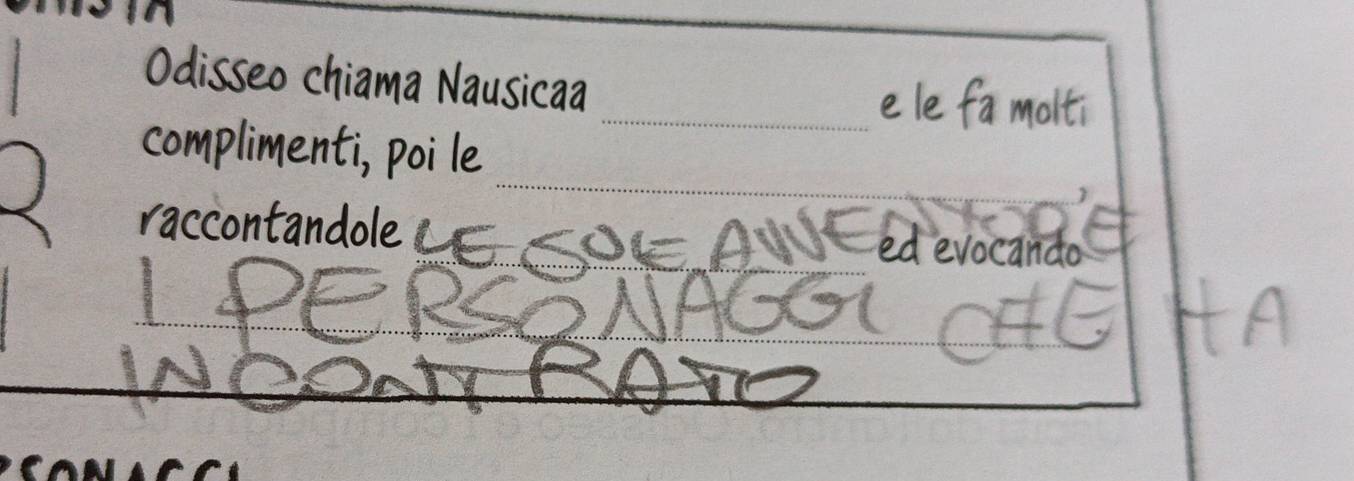 Odisseo chiama Nausicaa e le fa molti
complimenti, poi le ,
raccontandole LE SUE AVVENTURE ed evocando
I PERSONAGGI CHE HA
INCONTRATO